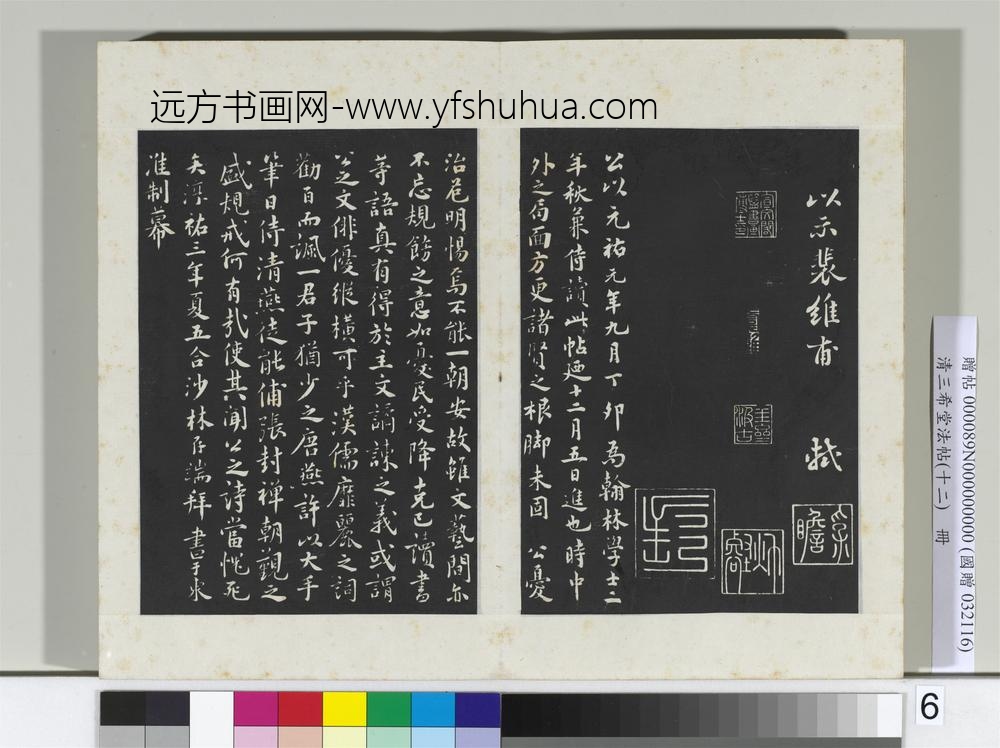 远方书画网-www.yfshuhua.com
以示裴維甫　軾
公以元祐元年九月丁卯為翰林学士二
年秋兼侍讀此帖廼十二月五日進也時中
外之局面方更諸賢之根脚未固　公憂
治危明惕焉不能一朝安故雖文藝間亦
不忘規飭之意如憂民受降克己讀書
等語真有得於主文譎諫之義或謂
公之文俳優縱橫可乎漢儒靡麗之詞
勸百而諷一君子猶少之唐燕許以大手
筆日侍清燕徒能鋪張封禪朝覲之
盛規戒何有哉使其聞公之詩當愧死
矣淳祐三年夏五合沙林存端拜書于
淮制幕
贈帖 0000089N000000000 (國贈 032116)
清三希堂法帖(十二)　冊
6